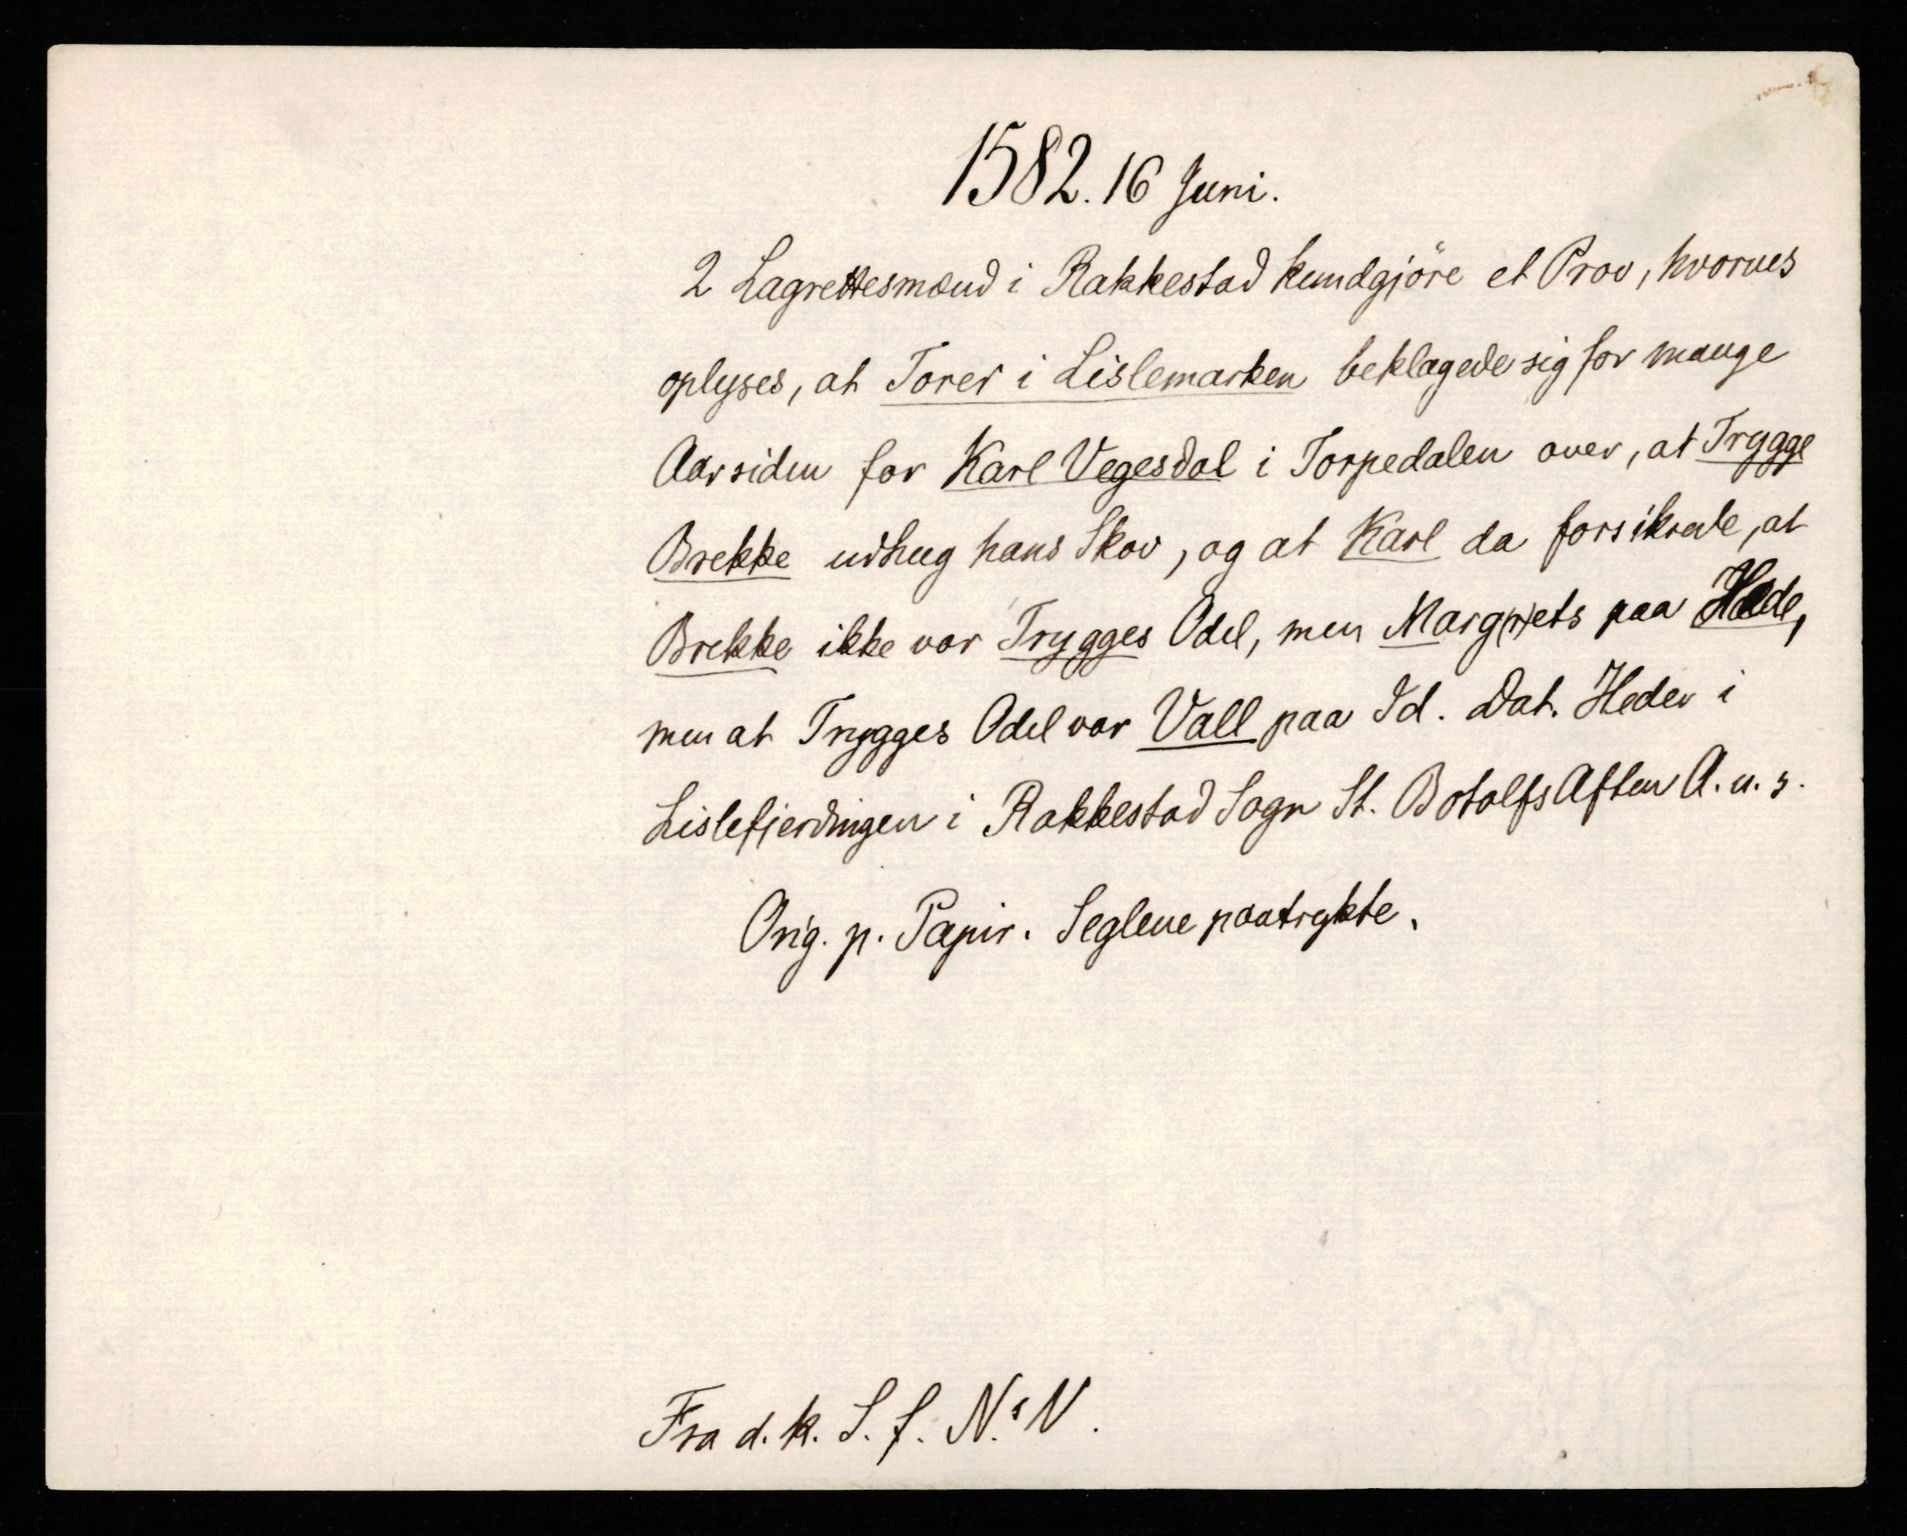 1582. 16 Juni.
2 Lagrettesmænd i Rakkestad kundgjöre et Prov, hvorves
oplyses, at Torer i Lislemarken beklagede sig for mange
Aar siden for Karl Vegesdal i Torpedalen over, at Trygge
Brekke udhug hans Skov, og at Karl da forsikrede, at
Brekke ikke var Trygges Odel, men Marg(r)ets paa Hede,
men at Trygges Odel var Vall paa Id. Dat. Heder i
Lislefjerdingen i Rakkestad Sogn St. Botolfs Aften A. u. s.
Orig. p. Papir. Seglene paatrykte.
Fra d. k. S. f. N. s V.